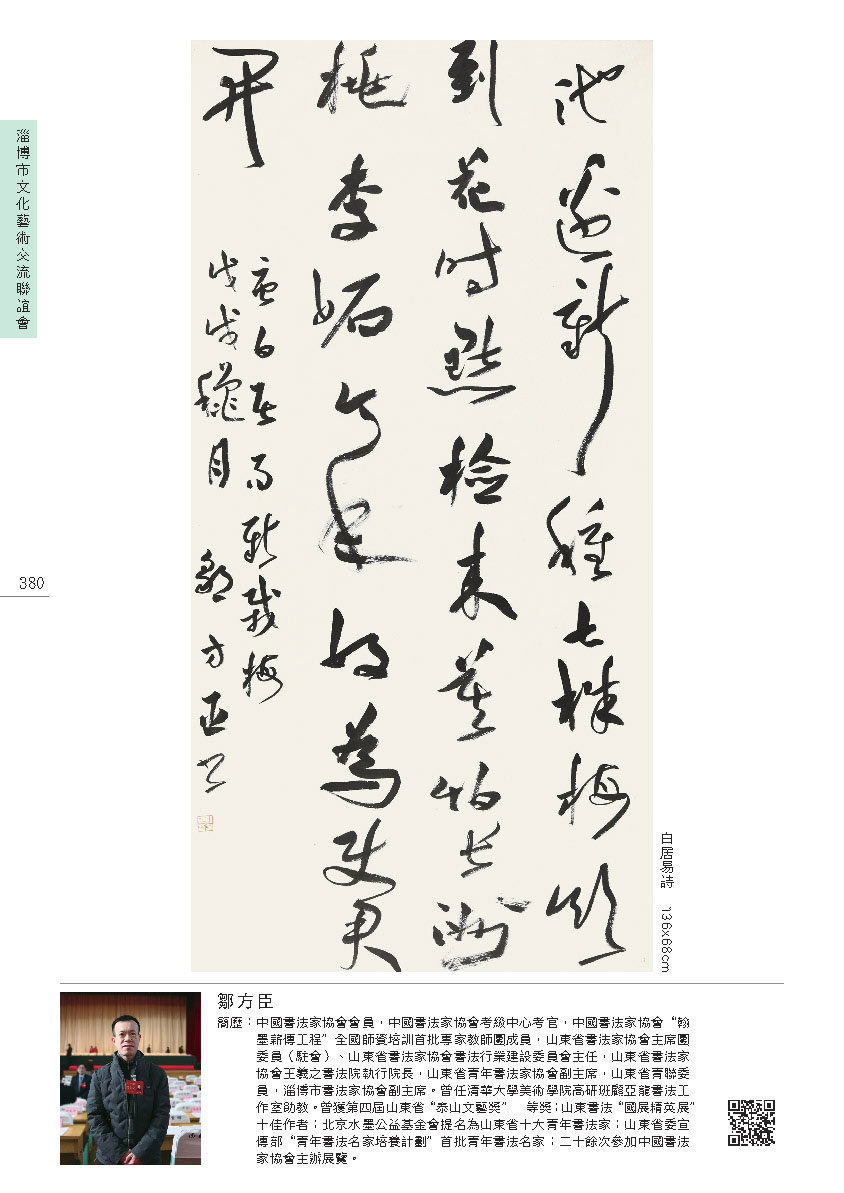 淄博市文化藝術交流聯誼會
380
池邊新種七株梅欲
到花時點檢來莫怕長洲
桃李妬今年好為使君
開
唐白居易新栽梅
戊戌穐月 鄒方臣書
白居易詩 136x68cm
鄒方臣
簡歷：中國書法家協會會員，中國書法家協會考級中心考官，中國書法家協會“翰
墨薪傳工程”全國師資培訓首批專家教師團成員，山東省書法家協會主席團
委員（駐會）、山東省書法家協會書法行業建設委員會主任，山東省書法家
協會王羲之書法院執行院長，山東省青年書法家協會副主席，山東省青聯委
員，淄博市書法家協會副主席。曾任清華大學美術學院高研班顧亞龍書法工
作室助教。曾獲第四屆山東省“泰山文藝獎” 等獎；山東書法“國展精英展”
十佳作者；北京水墨公益基金會提名為山東省十大青年書法家；山東省委宣
傳部“青年書法名家培養計劃”首批青年書法名家；二十餘次參加中國書法
家協會主辦展覽。